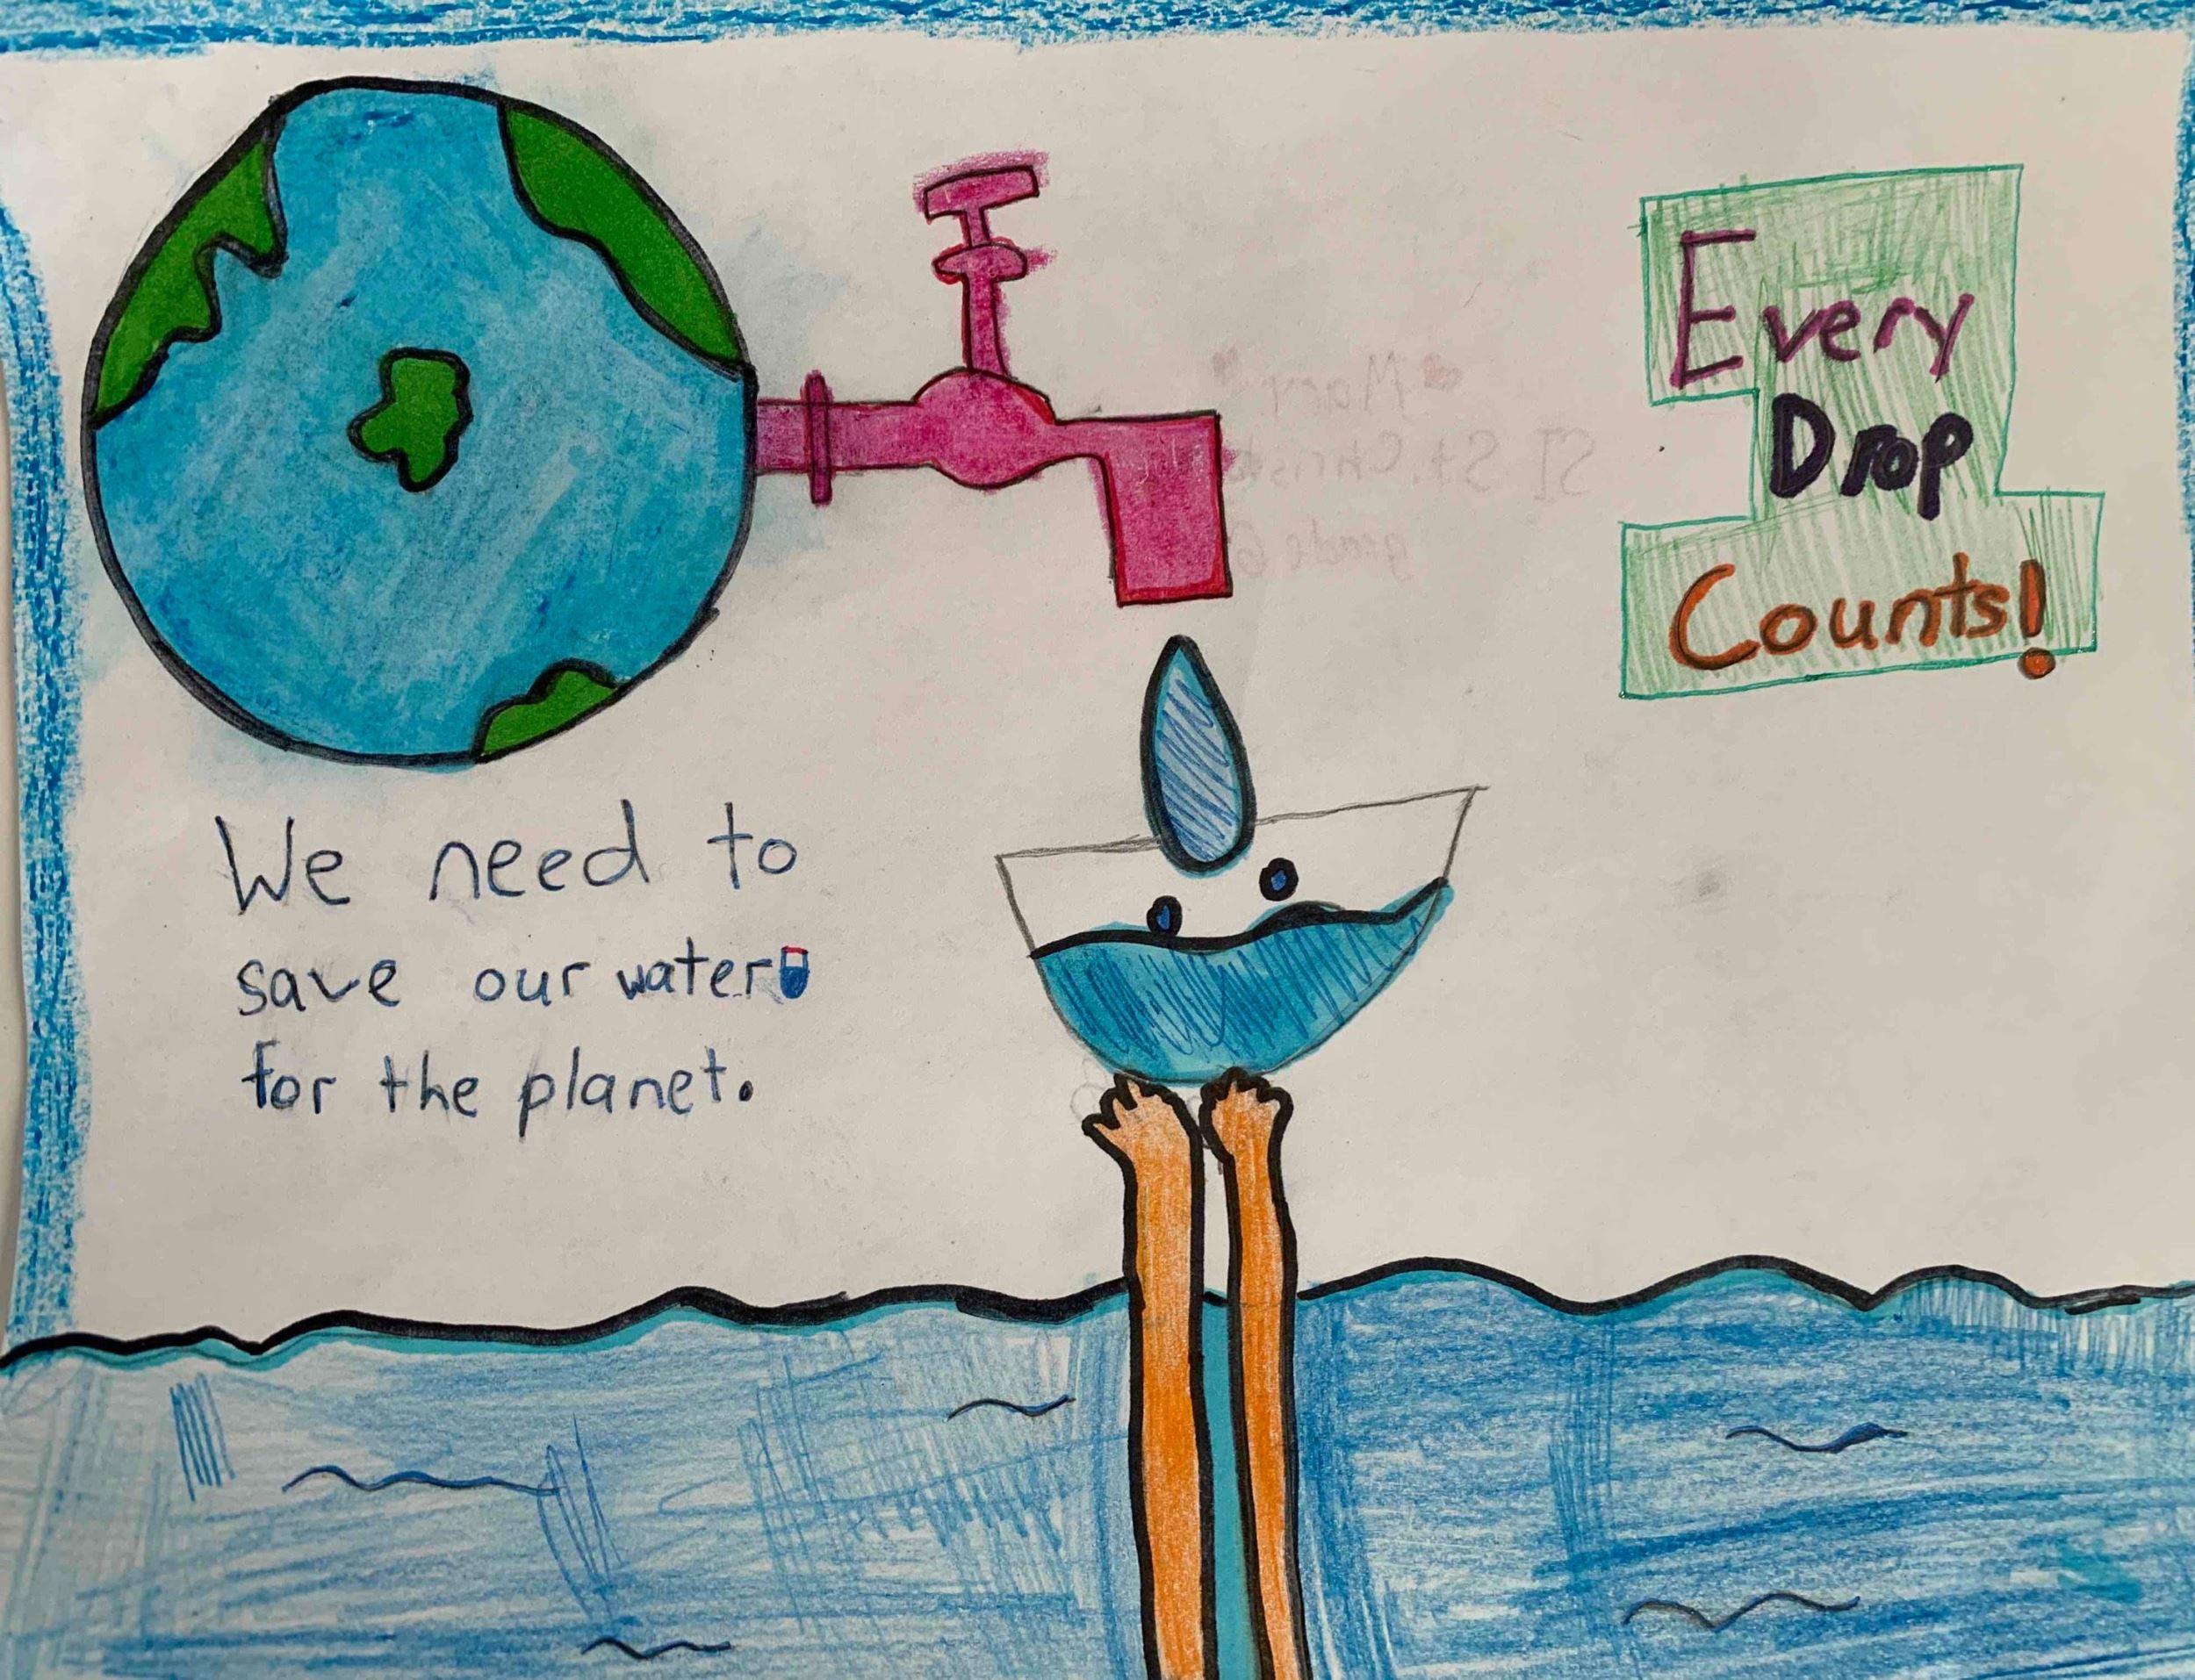 Every
Drop
Counts!
We need to
save our water
for the planet.
Mary
grade 6